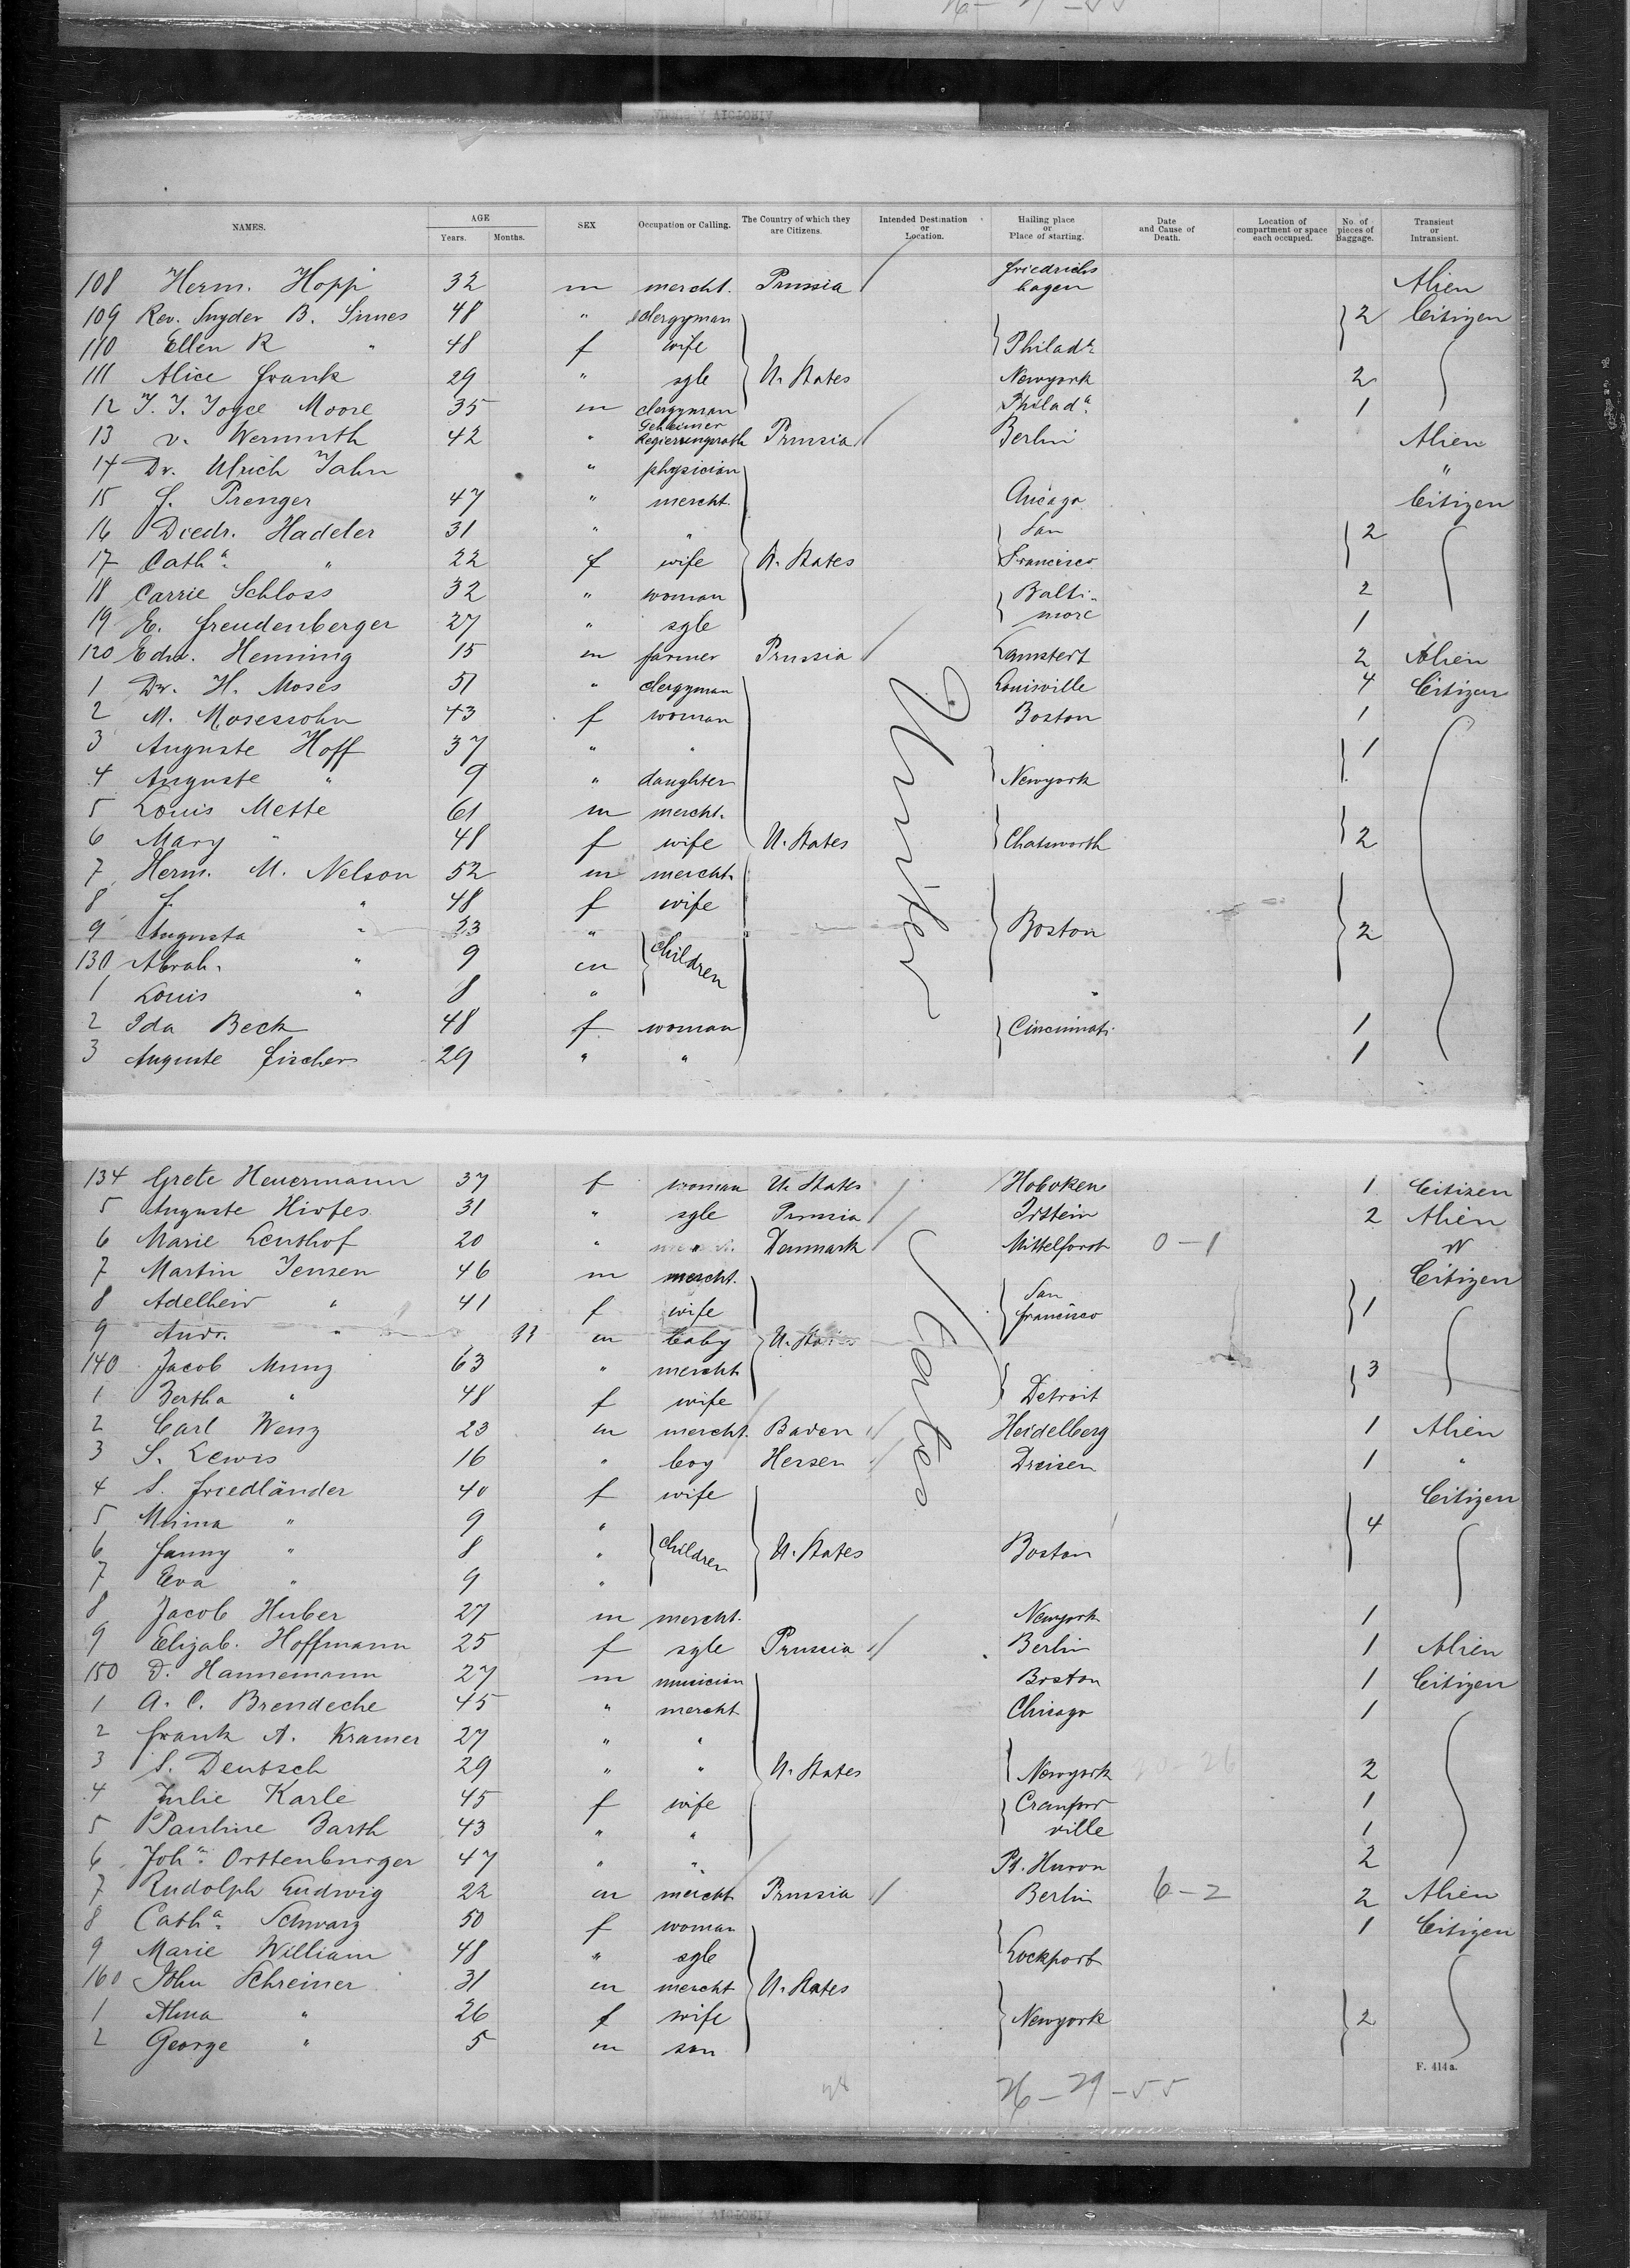 26-29-55
NAMES. AGE Years. Months. SEX Occupation or Calling. The Country of which they are Citizens. Intended Destination or Location. Hailing place or Place of starting. Date and Cause of Death. Location of compartment or space each occupied. No. of pieces of Baggage. Transient or Intransient.
108 Herm. Hopp 32 m mercht. Prussia / Friedrichshagen Alien
109 Rev. Snyder B. Simes 48 " clergyman 2 Citizen
110 Ellen R " 48 f wife Philada
111 Alice Frank 29 " sgle U. States Newyork 2
12 T. J. Joyce Moore 35 m clergyman Philada. 1
13 v. Wermuth 42 " Geheimer Regierungsrath Prussia / Berlin Alien
14 Dr. Ulrich Jahn " physician "
15 J. Prenger 47 " mercht. Chicago Citizen
16 Diedr. Hadeler 31 " " San 2
17 Catha. " 22 f wife U. States Francisco
18 Carrie Schloss 32 " woman Balti- 2
19 E. Freudenberger 27 " sgle more 1
120 Edw. Henning 15 m farmer Prussia / Lamstedt 2 Alien
1 Dr. H. Moses 51 " clergyman Louisville 4 Citizen
2 M. Mosessohn 43 f woman Boston 1
3 Auguste Hoff 37 " " 1
4 Auguste " 9 " daughter Newyork
5 Louis Mette 61 m mercht.
6 Mary " 48 f wife U. States Chatsworth 2
7 Herm. M. Nelson 52 m mercht.
8 J. " 48 f wife
9 Augusta " 23 " children Boston 2
130 Abrah. " 9 m
1 Louis " 8 "
2 Ida Beck 48 f woman Cincinnati 1
3 Auguste Fischer 29 " " 1
134 Grete Heuermann 37 f woman U. States / Hoboken 1 Citizen
5 Auguste Hirfes 31 " sgle Prussia / Idstein 2 Alien
6 Marie Lensthof 20 " Denmark / Mittelforst 0-1 "
7 Martin Jensen 46 m mercht. Citizen
8 Adelheid " 41 f wife San Francisco 1
9 Andr. " 11 m baby U. States
140 Jacob Munz 63 " mercht 3
1 Bertha " 48 f wife Detroit
2 Carl Wenz 23 m mercht. Baden Heidelberg 1 Alien
3 S. Lewis 16 " boy Hessen Dreisen 1 "
4 S. Friedländer 40 f wife Citizen
5 Minna " 9 " 4
6 Fanny " 8 " children U. States Boston
7 Eva " 9 "
8 Jacob Huber 27 m mercht. Newyork 1
9 Elizab. Hoffmann 25 f sgle Prussia Berlin 1 Alien
150 D. Hannemann 27 m musician Boston 1 Citizen
1 A. C. Brendecke 45 " mercht Chicago 1
2 Frank A. Kramer 27 " "
3 S. Deutsch 29 " " U. States Newyork 2
4 Julie Karle 45 f wife Cranford 1
5 Pauline Barth 43 " " ville 1
6 Joha. Orttenburger 47 " " Pt. Huron 2
7 Rudolph Ludwig 22 m mercht Prussia / Berlin 6-2 2 Alien
8 Catha. Schwarz 50 f woman 1 Citizen
9 Marie William 48 " sgle Lockport
160 John Schreiner 31 m mercht U. States
1 Alma " 26 f wife Newyork 2
2 George " 5 m son
United
States
F. 414a.
26-29-55